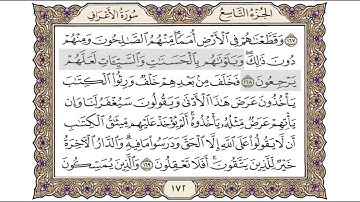 الجزء التاسع سورة الأعراف
١٦٧ وَقَطَّعْنَاهُمْ فِي الْأَرْضِ أُمَمًا مِّنْهُمُ الصَّالِحُونَ وَمِنْهُمْ
دُونَ ذَٰلِكَ وَبَلَوْنَاهُم بِالْحَسَنَاتِ وَالسَّيِّئَاتِ لَعَلَّهُمْ
يَرْجِعُونَ ١٦٨ فَخَلَفَ مِن بَعْدِهِمْ خَلْفٌ وَرِثُوا الْكِتَابَ
يَأْخُذُونَ عَرَضَ هَٰذَا الْأَدْنَىٰ وَيَقُولُونَ سَيُغْفَرُ لَنَا وَإِن
يَأْتِهِمْ عَرَضٌ مِّثْلُهُ يَأْخُذُوهُ أَلَمْ يُؤْخَذْ عَلَيْهِم مِّيثَاقُ الْكِتَابِ
أَن لَّا يَقُولُوا عَلَى اللَّهِ إِلَّا الْحَقَّ وَدَرَسُوا مَا فِيهِ وَالدَّارُ الْآخِرَةُ
خَيْرٌ لِّلَّذِينَ يَتَّقُونَ أَفَلَا تَعْقِلُونَ ١٦٩ وَالَّذِينَ يُمَسِّكُونَ
١٧٢